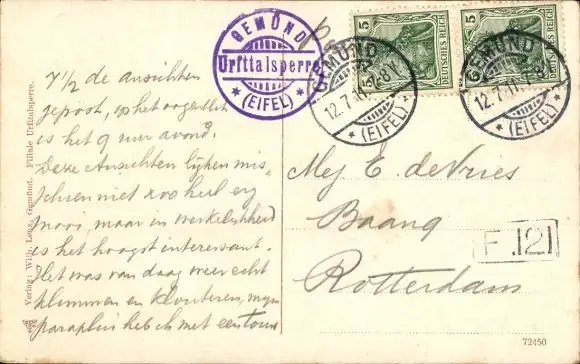 GEMÜND
Urfttalsperre
* (EIFEL) *
5
DEUTSCHES REICH
5
DEUTSCHES REICH
GEMÜND
12.7.11 7-8V
* (EIFEL) *
GEMÜND
12.7.11 7-8V
* (EIFEL) *
7 1/2 de ansichten
gepost, op het oogenblik
is het 9 uur avond.
Deze Ansichten lijken mis-
schien niet zoo heel erg
mooi, maar in werkelijkheid
is het hoogst interessant.
Het was van daag weer echt
klimmen en klouteren, mijn
parapluie heb ik met een touw
Mej E. de Vries
Baang
Rotterdam
F. 12
Verlag: Wilh. Lenz, Gemünd. Filiale Urfttalsperre.
72450